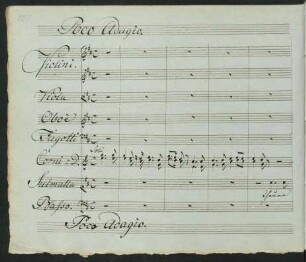 Poco Adagio.
Violini.
Viola
Oboe
Fagotti
Corni
Basso.
Poco Adagio.